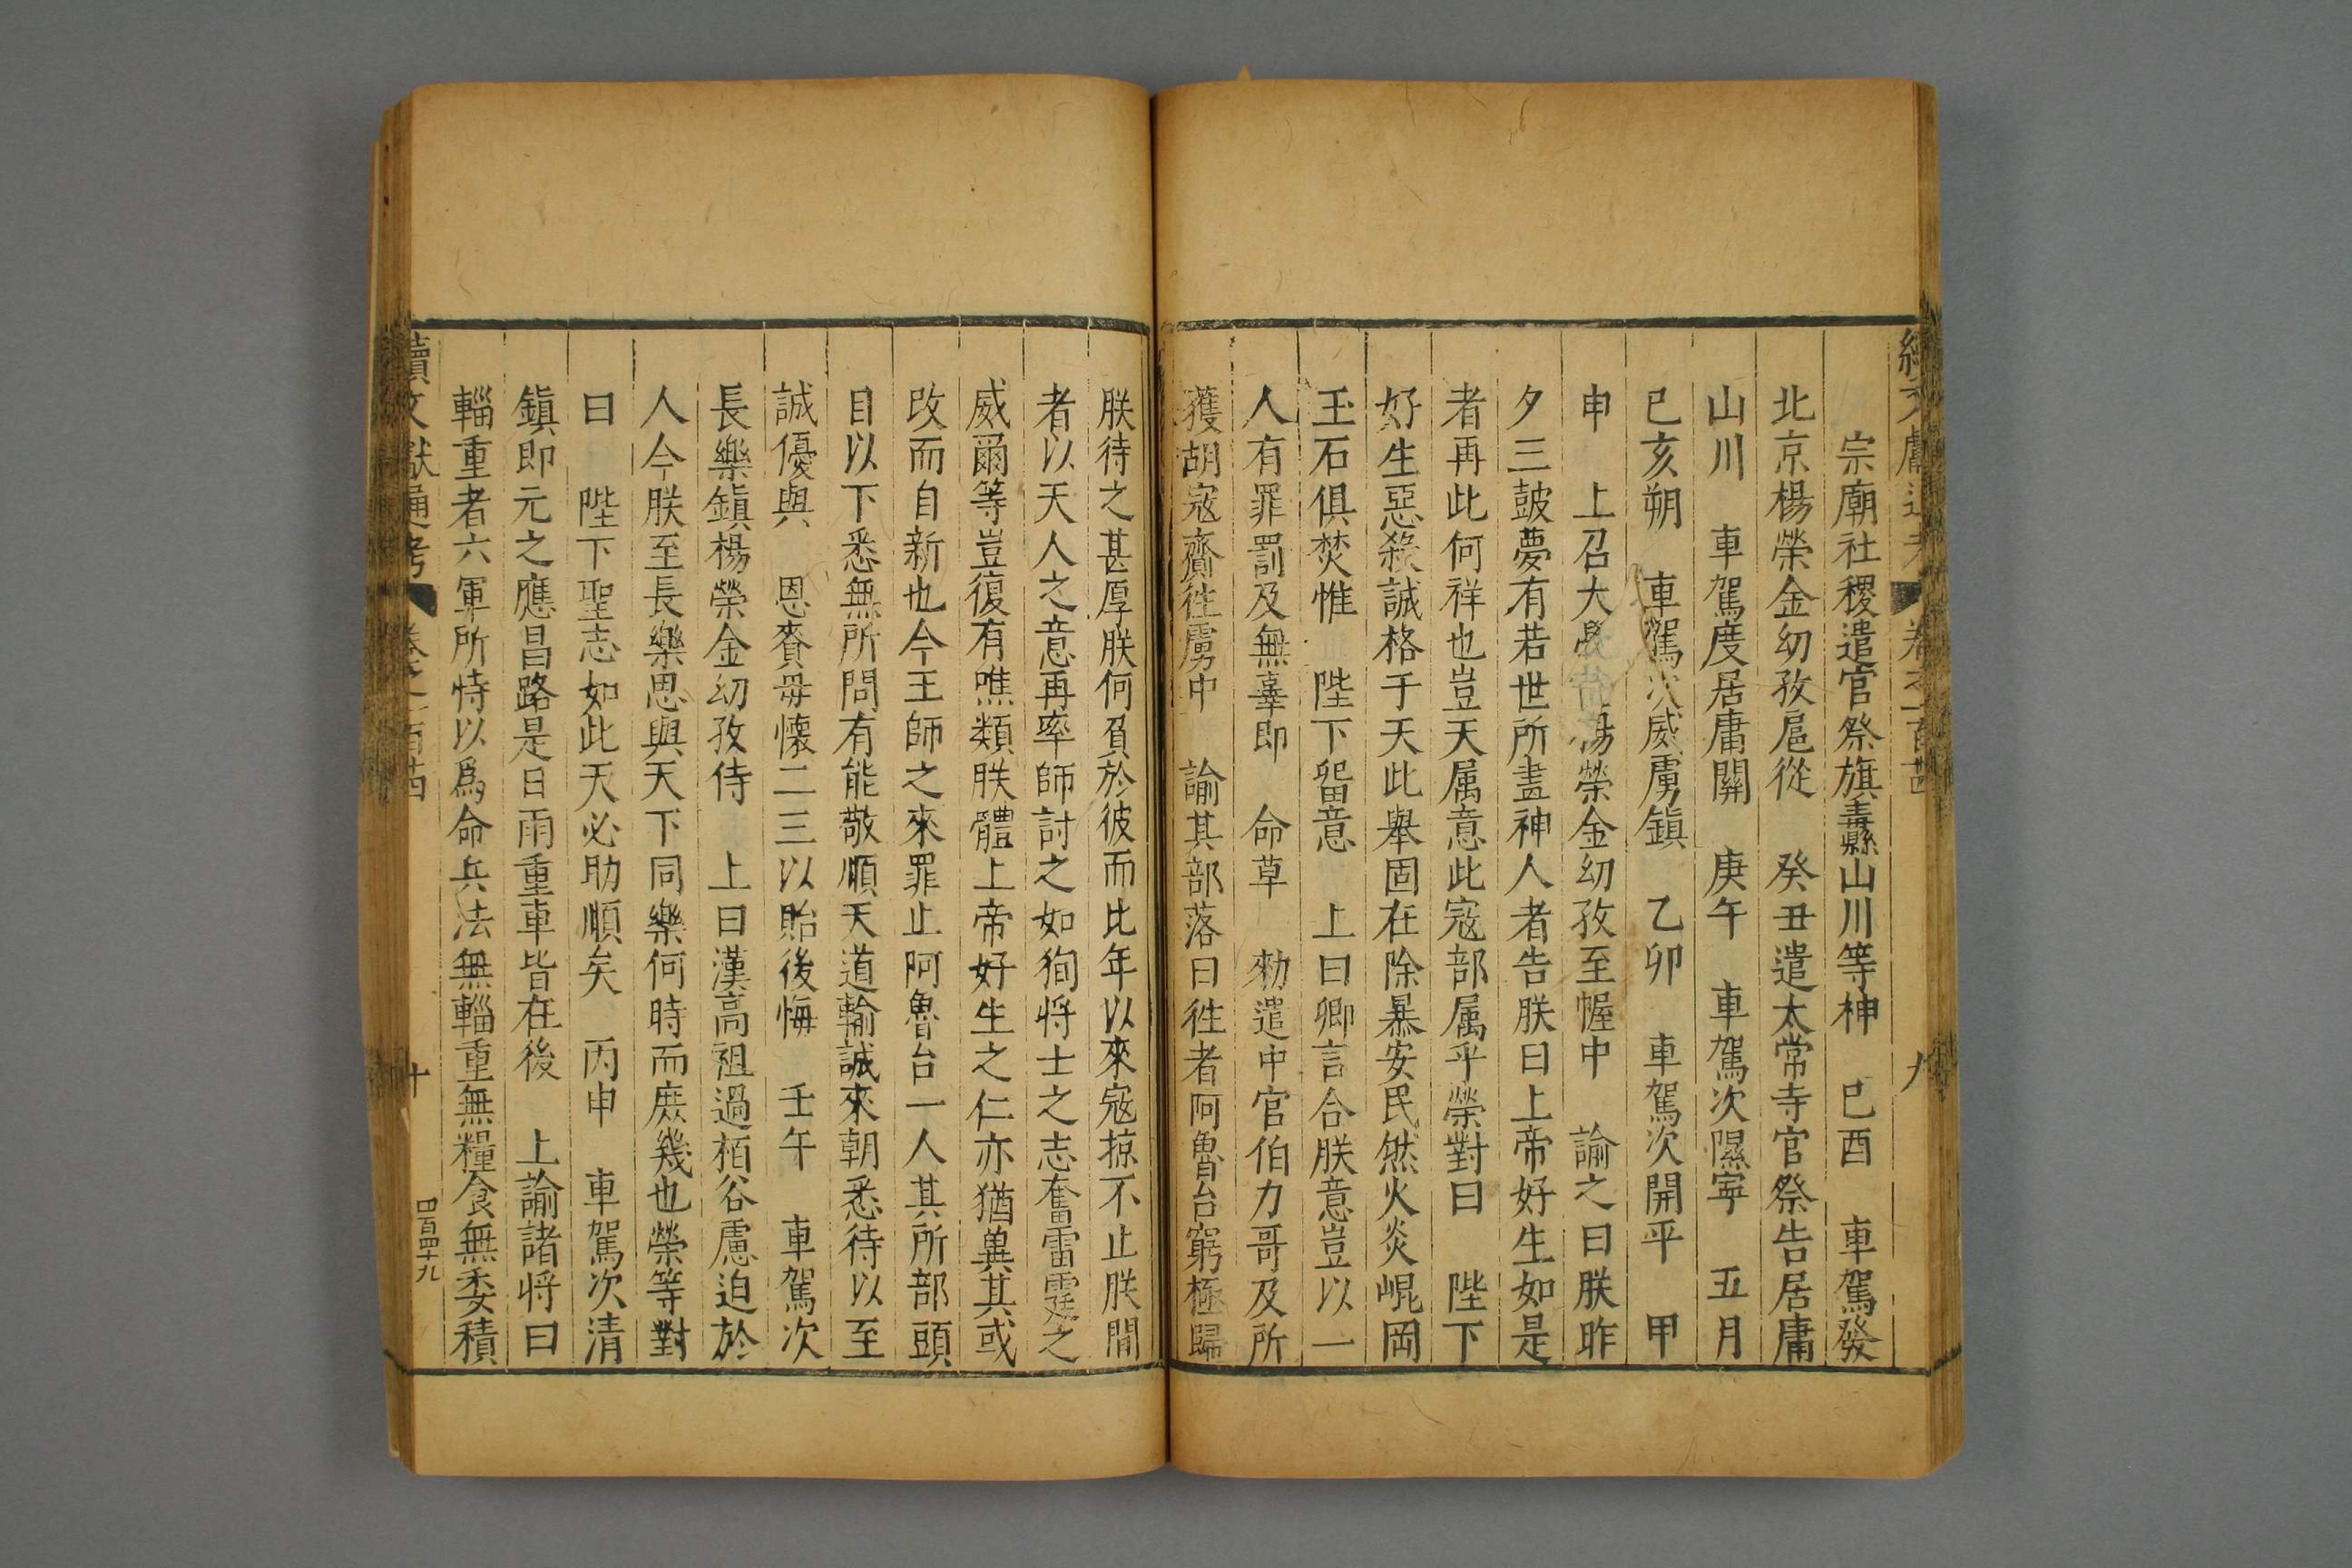 宗廟社稷遣官祭旗纛山川等神　己酉　車駕發
北京楊榮金幼孜扈從　癸丑遣太常寺官祭告居庸
山川　車駕度居庸關　庚午　車駕次隰寧　五月
己亥朔　車駕次威虜鎮　乙卯　車駕次開平　甲
申　上召大學楊榮金幼孜至幄中　諭之曰朕昨
夕三鼓夢有若世所畫神人者告朕曰上帝好生如是
者再此何祥也豈天属意此寇部属乎榮對曰　陛下
好生惡殺誠格于天此舉固在除暴安民然火炎崐岡
玉石俱焚惟　陛下畱意　上曰卿言合朕意豈以一
人有罪罰及無辜即　命草　勑遣中官伯力哥及所
獲胡寇齎徃虜中　諭其部落曰徃者阿魯台窮極歸
朕待之甚厚朕何負於彼而比年以來寇掠不止朕間
者以天人之意再率師討之如狥將士之志奮雷霆之
威爾等豈復有噍類朕體上帝好生之仁亦猶兾其或
改而自新也今王師之來罪止阿魯台一人其所部頭
目以下悉無所問有能敬順天道輸誠來朝悉待以至
誠優與　恩賚毋懷二三以貽後悔　壬午　車駕次
長樂鎮楊榮金幼孜侍　上曰漢高祖過栢谷慮迫於
人今朕至長樂思與天下同樂何時而庶幾也榮等對
曰　陛下聖志如此天必助順矣　丙申　車駕次清
鎮即元之應昌路是日雨重車皆在後　上諭諸將曰
輜重者六軍所恃以爲命兵法無輜重無糧食無委積
續文獻通考　卷之　十
四百四十九